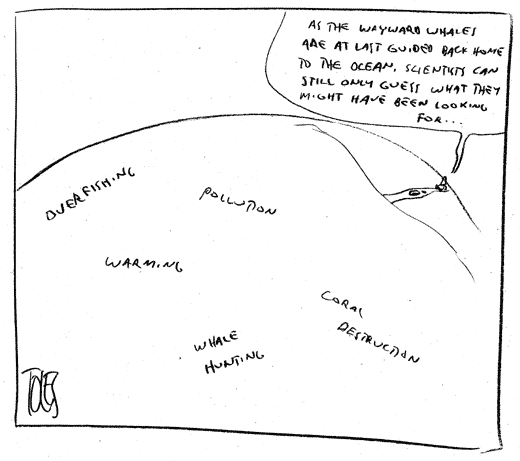 AS THE WAYWARD WHALES
ARE AT LAST GUIDED BACK HOME
TO THE OCEAN, SCIENTISTS CAN
STILL ONLY GUESS WHAT THEY
MIGHT HAVE BEEN LOOKING
FOR...
OVERFISHING
POLLUTION
WARMING
CORAL
DESTRUCTION
WHALE
HUNTING
TOLES